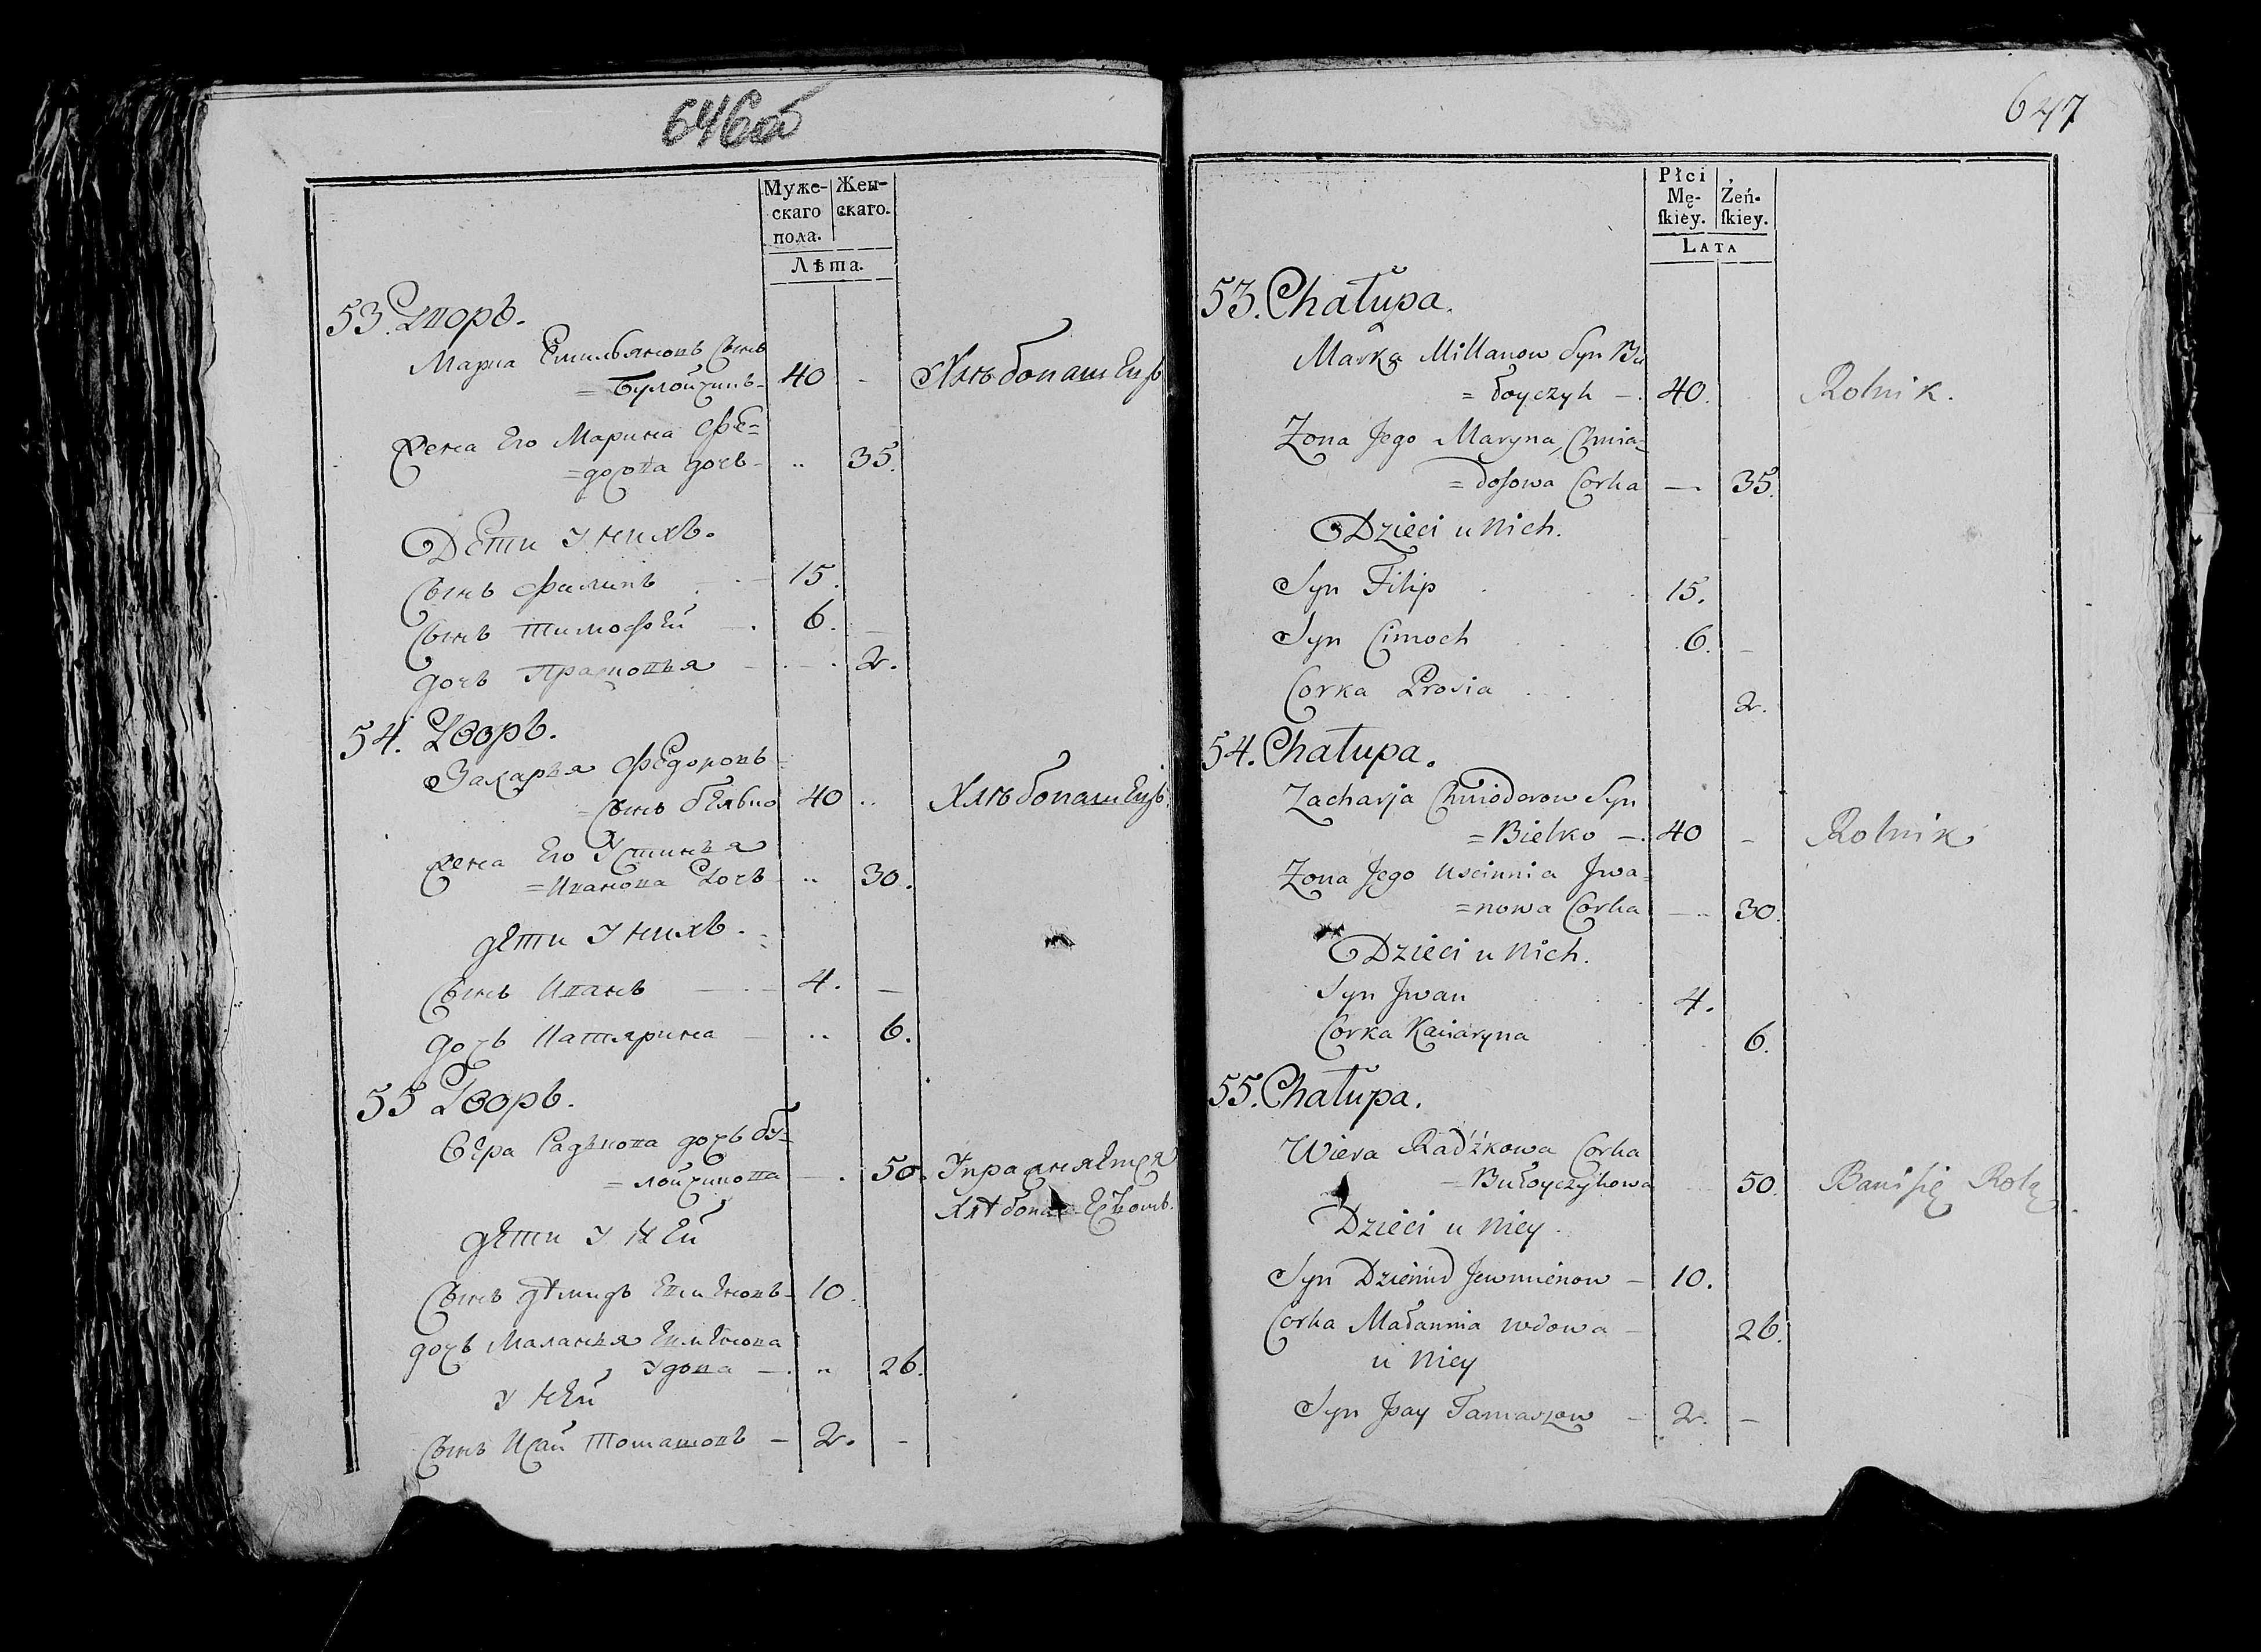 646об
Муже- Жен-
скаго скаго.
пола.
Лѣта.
53. Дворъ.
Марка Емильяновъ Сынъ
= Булойчикъ - 40 - Хлѣбопашецъ
Жена Его Марина Фе=
= дорова дочь - .. 35.
Дети У нихъ.
Сынъ Филипъ . - 15.
Сынъ Тимофей - . 6. -
дочь Прасковья - . - . 2.
54. Дворъ.
Захарья Федоровъ =
= Сынъ белько 40 .. Хлѣбопашецъ
Жена Его Устинья
= Иванова Дочь .. 30.
дети У нихъ.
Сынъ Иванъ - . - 4. -
дочь Катярина - .. 6.
55 Дворъ.
Вера Радькова дочь бу-
= лойчикова - . 50. Упражняется
Хлѣбопа
дети У Ней
Сынъ дѣмидъ Евменовъ - 10.
дочь Маланья Евменова
Удова - . .. 26.
У Ней
Сынъ Исай Томашовъ - 2. -
647
Płci
Mę- Żeń-
ſkiey. ſkiey.
LATA
53. Chałupa.
Marka Millanow Syn Bu
= łoyczyk - 40. Rolnik.
Zona Jego Maryna Chwia-
= doſowa Corka - 35.
Dzieci u Nich.
Syn Filip . 15.
Syn Cimoch . 6. -
Corka Prosia . 2.
54. Chałupa.
Zacharja Chwiodorow Syn
= Bielko - 40 - Rolnik
Zona Jego Uscinnia Jwa-
= nowa Corka - .. 30.
Dzieci u Nich.
Syn Jwan 4.
Corka Kaciaryna 6.
55. Chałupa.
Wiera Radźkowa Corka
= Bułoyczykowa 50. Bawi ſię Rolą.
Dzieci u Niey.
Syn Dziemid Jewmienow - 10.
Corka Małannia wdowa - 26.
u Niey
Syn Jsay Tamaszow - 2. -